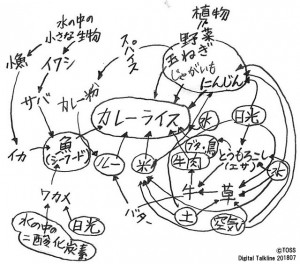 植物
水の中の
小さな生物
スパイス
野菜
玉ねぎ
じゃがいも
にんじん
小魚
イワシ
サバ
カレー粉
カレーライス
水
日光
イカ
魚
(シーフード)
ルー
米
ブタ・鳥
牛肉
とうもろこし
(エサ)
水
ワカメ
バター
牛
草
土
空気
水の中の
二酸化炭素
日光
©TOSS
Digital Talkline 201807